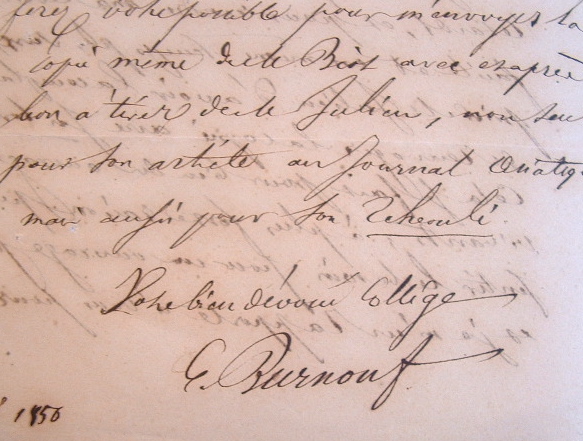 ferez votre possible pour m'envoyer la
copie même de de Biot avec et après
bon à tirer de de Julien, non seu
pour son article au Journal Asiatiq
mais aussi pour son Tcheouli
Votre bien dévoué Collège
E. Burnouf
1850